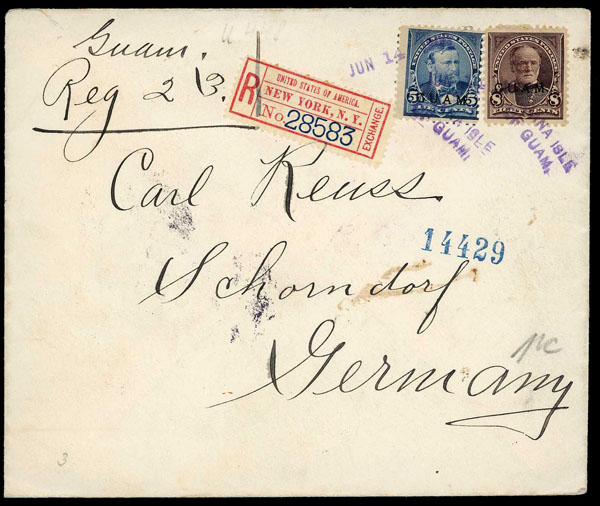 Guam.
Reg 213.
JUN 14
R
UNITED STATES OF AMERICA.
NEW YORK, N.Y.
No. 28583
EXCHANGE.
5 GUAM 5
8 GUAM 8
ISLE
GUAM.
NA ISLE
F GUAM.
Carl Reuss
14429
Schorndorf
Germany
3